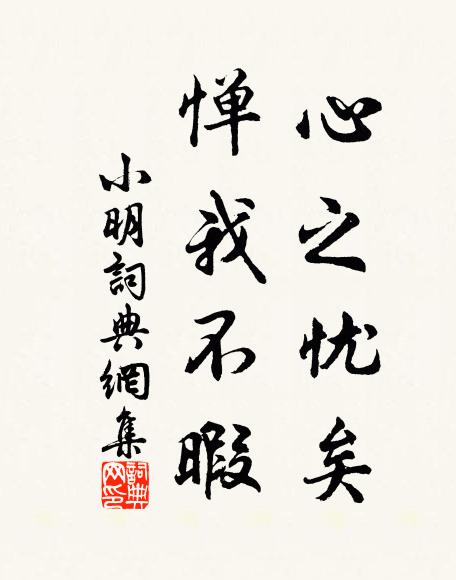 心之忧矣
惮我不暇
小明詞典網集
詞典
网印